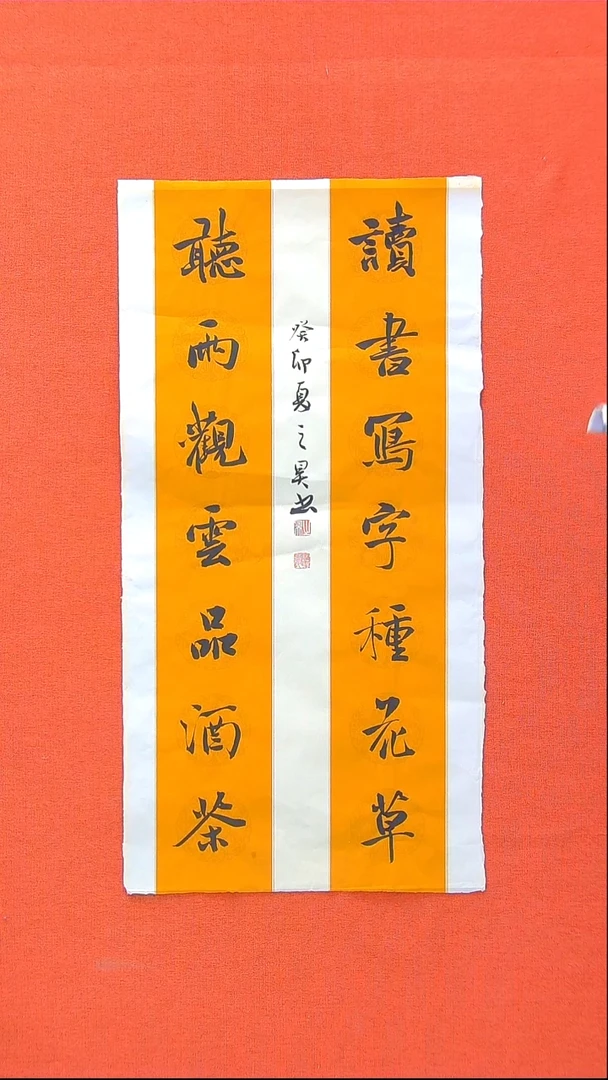 讀書寫字種花草
聽雨觀雲品酒茶
癸卯夏之昊书